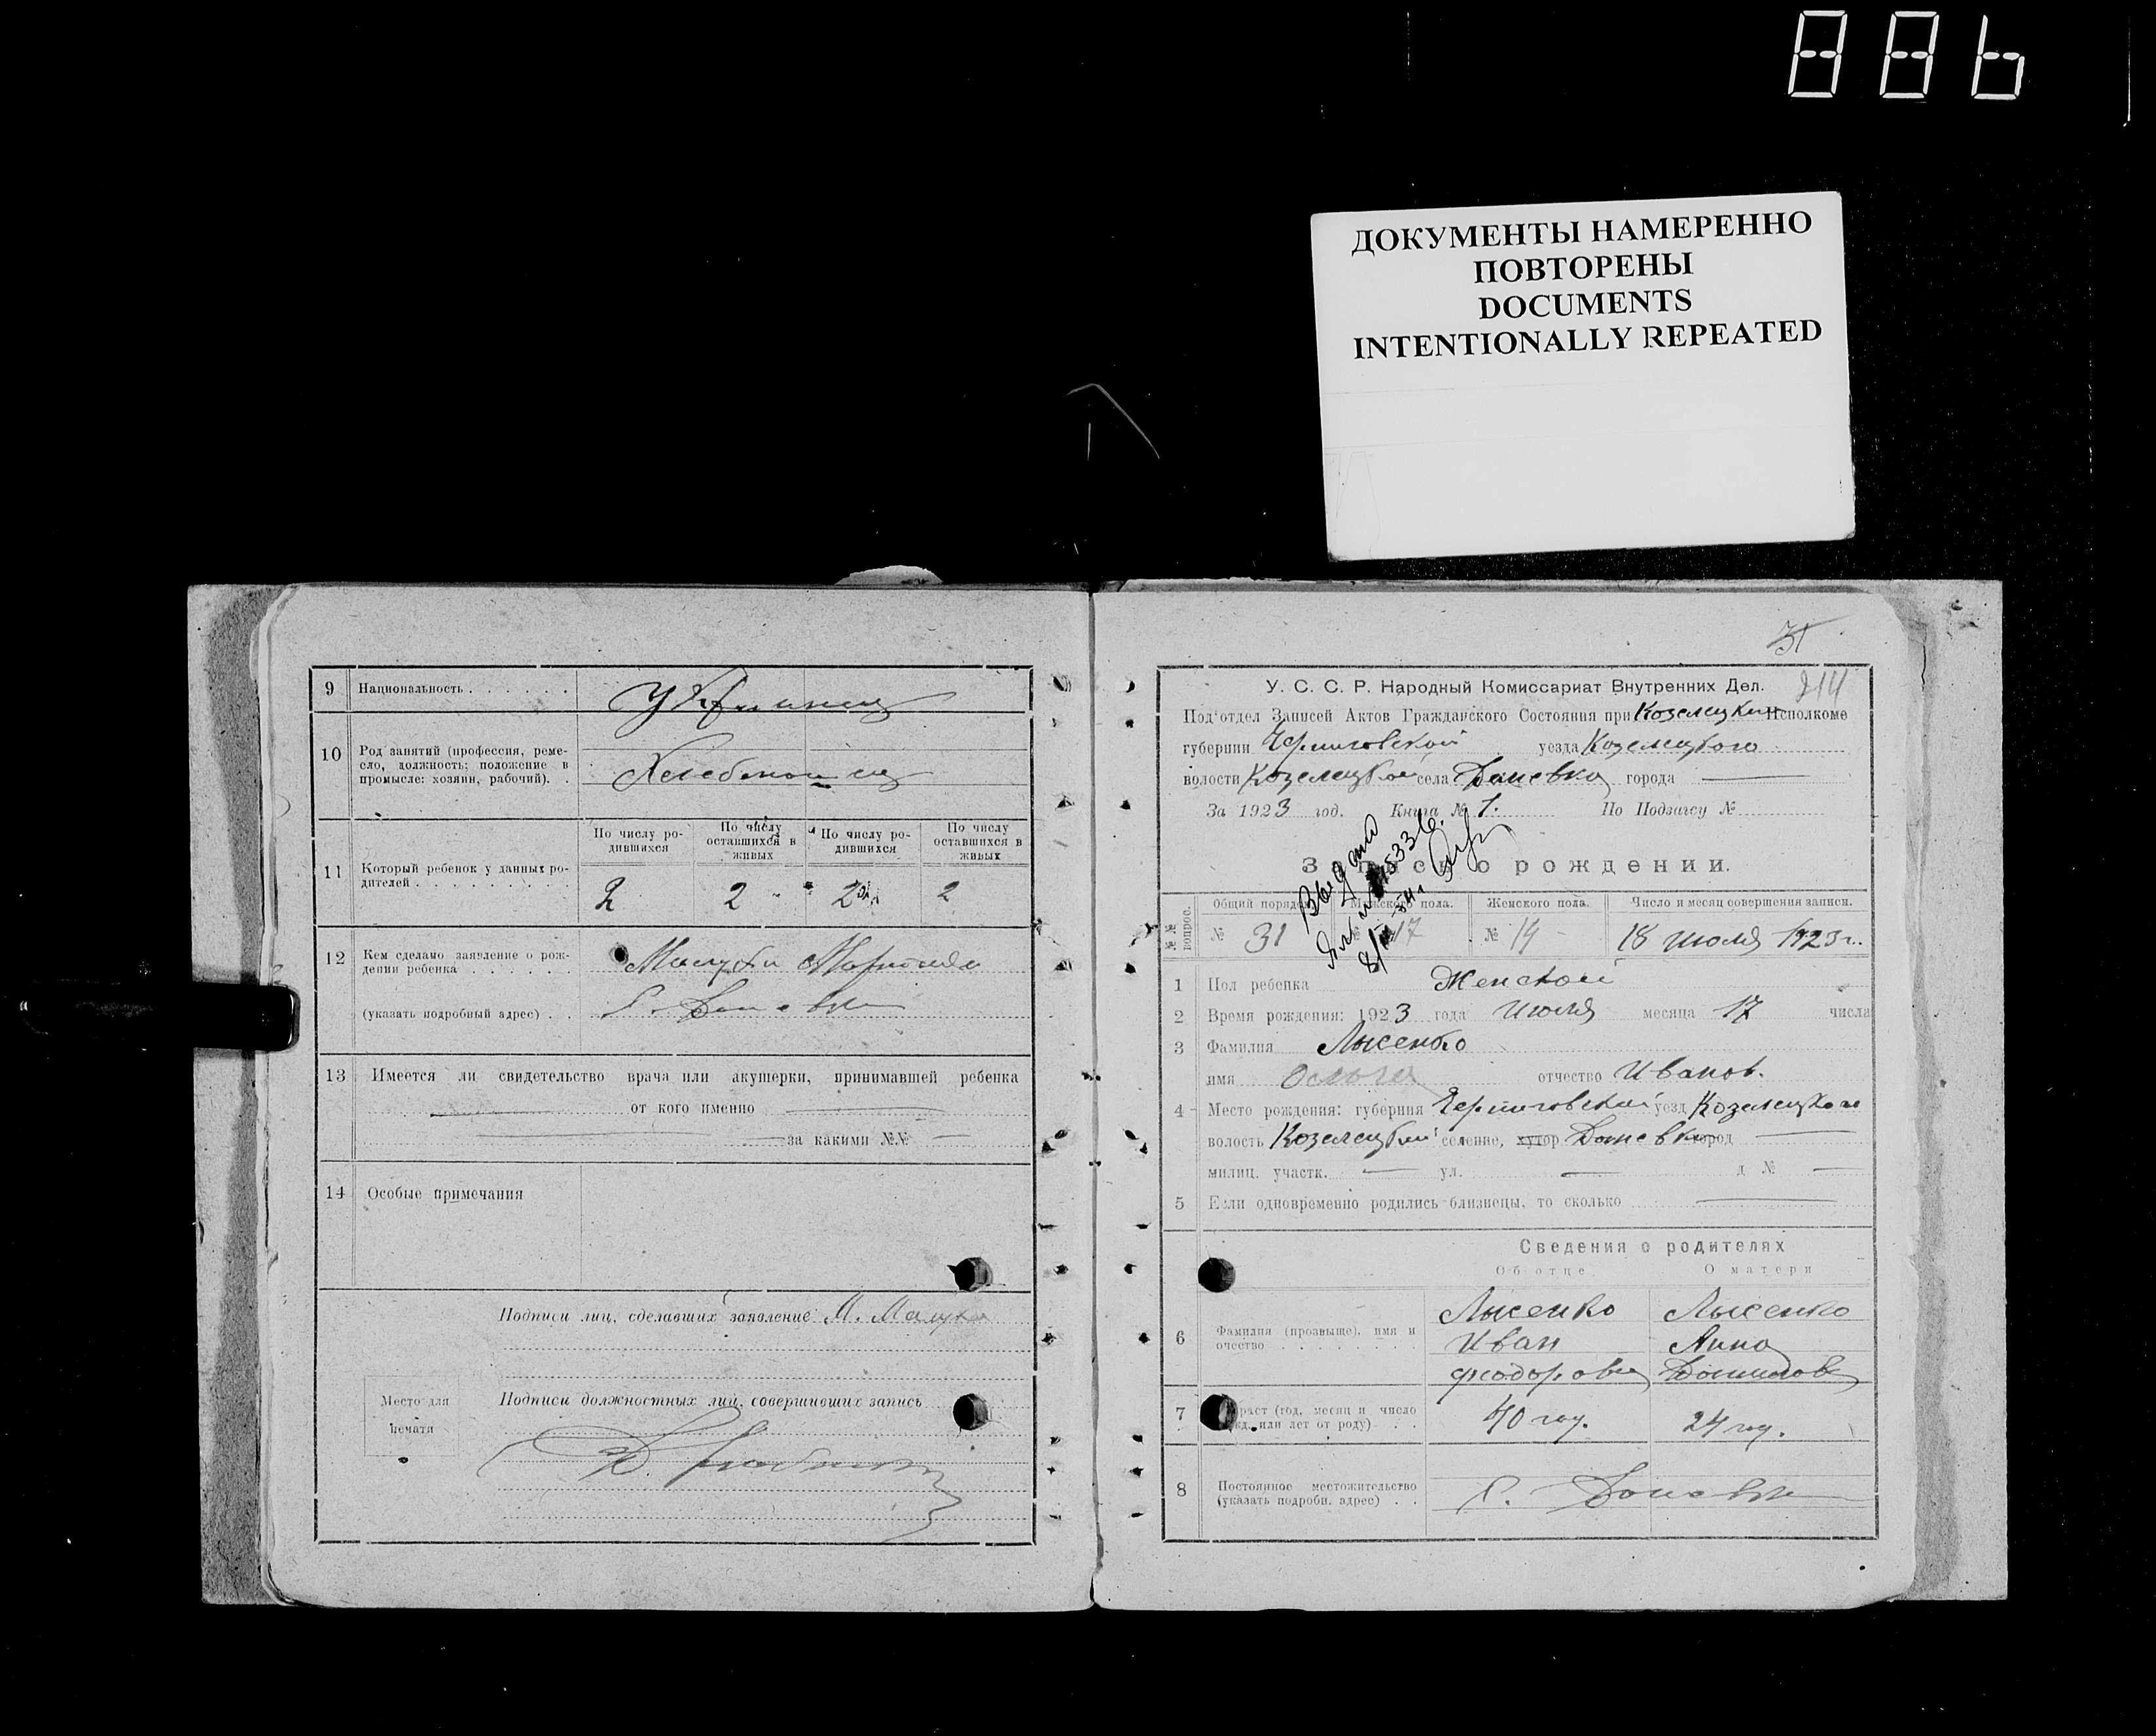 886
ДОКУМЕНТЫ НАМЕРЕННО
ПОВТОРЕНЫ
DOCUMENTS
INTENTIONALLY REPEATED
9 Национальность . . . . . .
10 Род занятий (профессия, реме-
сло, должность; положение в
промысле: хозяин, рабочий). .
11 Который ребенок у данных ро-
дителей . . . . . . . . .
По числу ро-
дившихся
По числу
оставшихся в
живых
По числу ро-
дившихся
По числу
оставшихся в
живых
2 2 2 2
12 Кем сделано заявление о рож-
дении ребенка . . . . . .
(указать подробный адрес) . .
13 Имеется ли свидетельство врача или акушерки, принимавшей ребенка
от кого именно
за какими №№
14 Особые примечания
Подписи лиц, сделавших заявление М.
Место для
печати
Подписи должностных лиц, совершивших запись
31
У. С. С. Р. Народный Комиссариат Внутренних Дел.
Под'отдел Записей Актов Гражданского Состояния при Козелецком Исполкоме
губернии Черниговской уезда Козелецкого
волости Козелецкой села Даневка города
За 1923 год. Книга № 1. По Подзагсу №
Выдано
Запись о рождении.
№№ вопрос.
Общий порядок Мужского пола. Женского пола. Число и месяц совершения записи.
№ 31 № 17 № 14 18 июля 1923 г.
1 Пол ребенка Женской
2 Время рождения: 1923 года Июля месяца 17 числа
3 Фамилия Лысенко
имя отчество Иванов.
4 Место рождения: губерния Черниговской уезд Козелецкого
волость Козелецкой селение, хутор Даневка город
милиц. участк. ул. д №
5 Если одновременно родились близнецы, то сколько
Сведения о родителях
Об отце О матери
6 Фамилия (прозвыще), имя и
очество . . . . . . . .
Лысенко Лысенко
Иван Анна
7 Возраст (год, месяц и число
рожд. или лет от роду) . .
40 год. 24 год.
8 Постоянное местожительство
(указать подробн. адрес) . .
с. Даневка